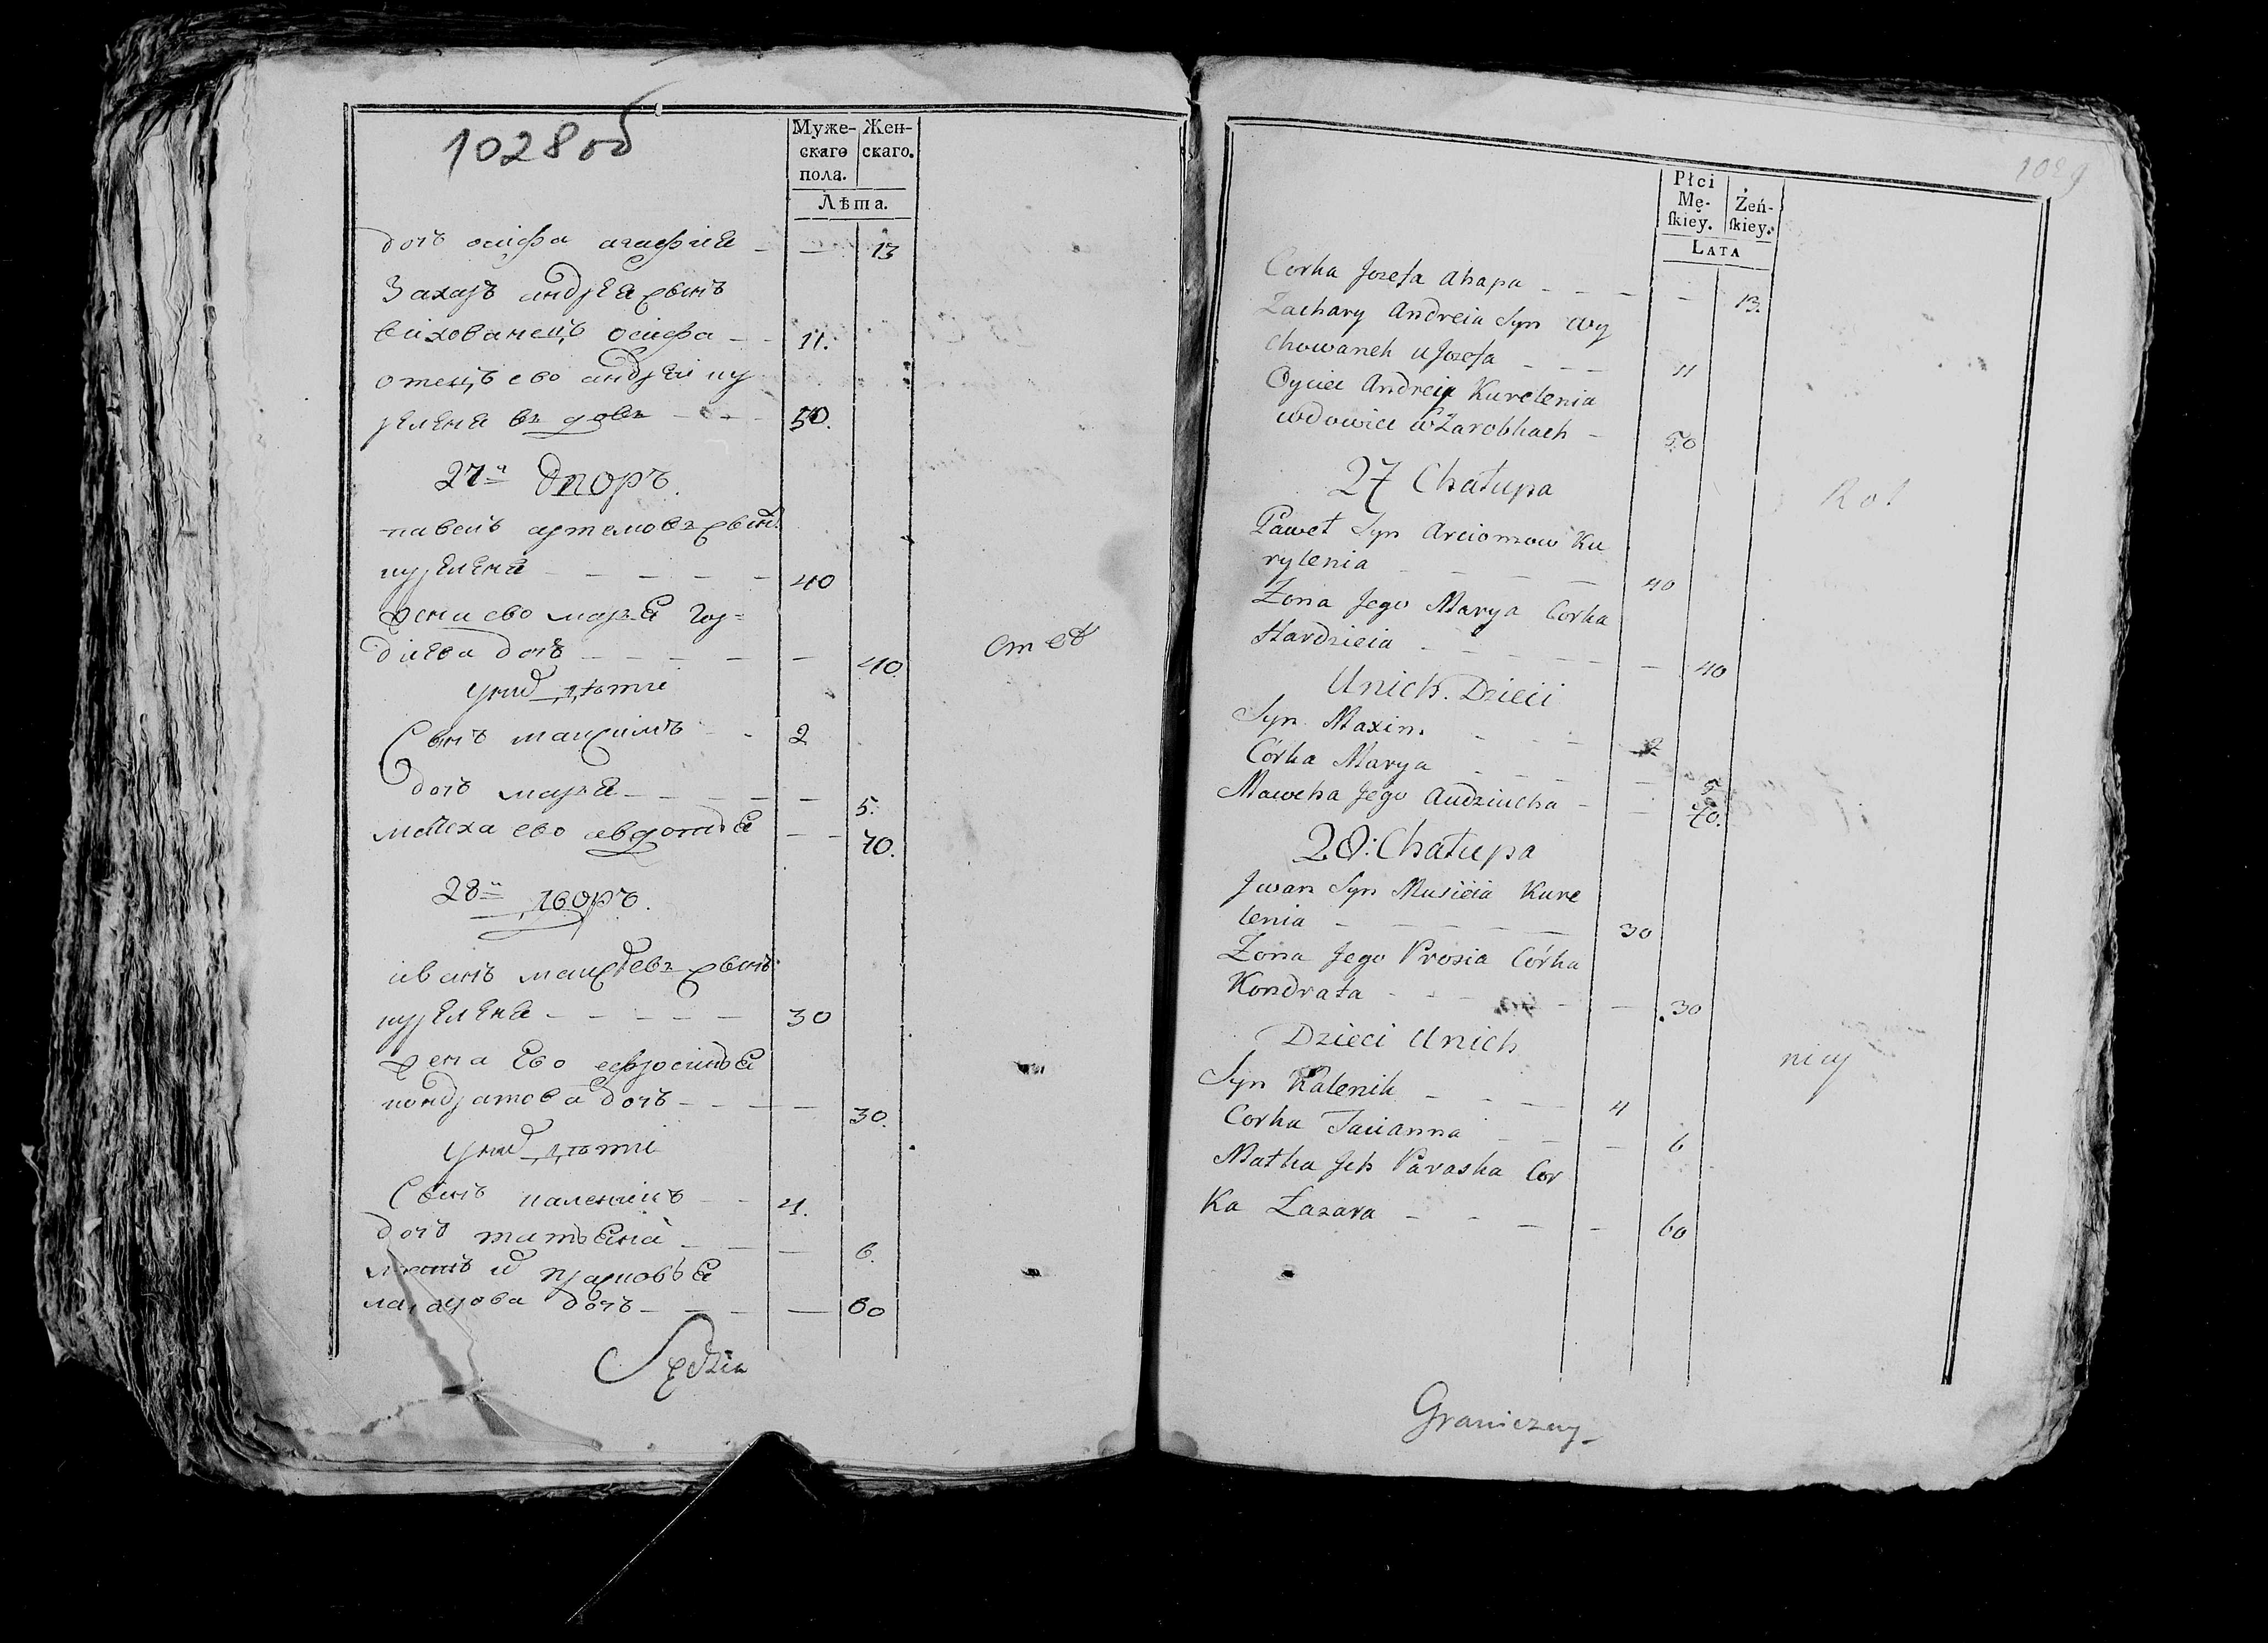 1028об
Муже- Жен-
скаго скаго.
пола.
Лѣта.
дочь осифа агафия - — 13
Захаръ андрея сынъ
вихованецъ осифа - - 11.
отецъ ево андрей ку
релена - - 50.
27й Дворъ.
павелъ артемовъ сынъ
куреленя - - - - - 40
жена ево марья гор=
диева дочь - - - - - — 40
у них дѣти
Сынъ максимъ - - 2
дочь марья - - - - - 5.
мачеха ево авдотья — 70.
28й дворъ.
иванъ сынъ
куреленя - - - - - 30
жена Ево ефросинья
кондратова дочь - - - — 30.
у них дѣти
Сынъ каленикъ - - 4.
дочь татьяна - - - — 6.
мать их прасковья
лазарова дочь - - - — 60
Sędzia
от ев
1029
Płci
Mę- Żeń-
ſkiey. ſkiey.
LATA
Corka Jozefa Ahapa - - - - 13.
Zachary Andreia Syn Wy
chowanek u Jozefa - - - 11
Oyciec Andreia Kurelenia
wdowiec w Zarobkach - 50
27 Chałupa
Paweł Syn Arciomow Ku
rylenia - - - - 40
Zona Jego Marya Corka
Hardzieia - - - - - - 40
Unich. Dzieci
Syn Maxim. - - - 2
Córka Marya - - - - 5
Macocha Jego Audziucha - - 70.
28: Chałupa
Jwan Syn Musieia Kure
lenia - - - - - 30
Zona Jego Prosia Córka
Kondrata - - - - - 30
Dzieci Unich
Syn Kalenik - - - 4
Corka Tacianna - - - 6
Matka Jch Paraska Cor
Ka Łazara - - - - 60
nicy
Graniczny